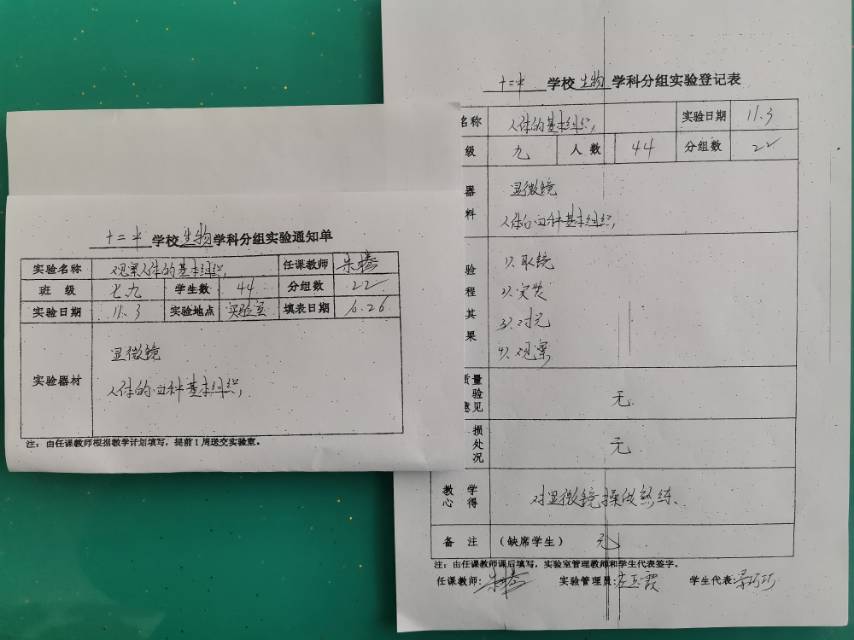 十二中 学校 生物 学科分组实验通知单
实验名称 观察人体的基本组织 任课教师
班 级 七、九 学生数 44 分组数 22
实验日期 11.3 实验地点 实验室 填表日期 10.26
实验器材
显微镜
人体的四种基本组织
注：由任课教师根据教学计划填写，提前1周送交实验室。
十二中 学校 生物 学科分组实验登记表
名称 人体的基本组织 实验日期 11.3
级 九 人 数 44 分组数 22
器 显微镜
料 人体的四种基本组织
验 1）取镜
程 2）安装
其 3）对光
果 4）观察
质量
验
意见 无
损
处
况 无
教 学
心 得 对显微镜操作熟练
备 注 (缺席学生) 无
注：由任课教师课后填写，实验室管理教师和学生代表签字。
任课教师： 实验管理员： 学生代表：